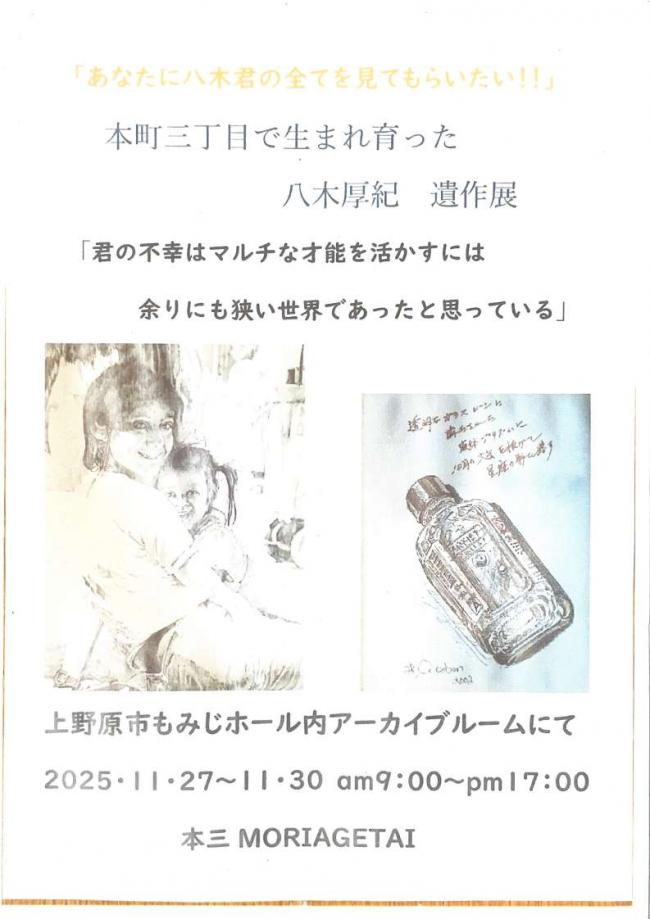 「あなたに八木君の全てを見てもらいたい!!」
本町三丁目で生まれ育った
八木厚紀　遺作展
「君の不幸はマルチな才能を活かすには
余りにも狭い世界であったと思っている」
2002
上野原市もみじホール内アーカイブルームにて
2025・11・27～11・30 am9：00～pm17：00
本三 MORIAGETAI